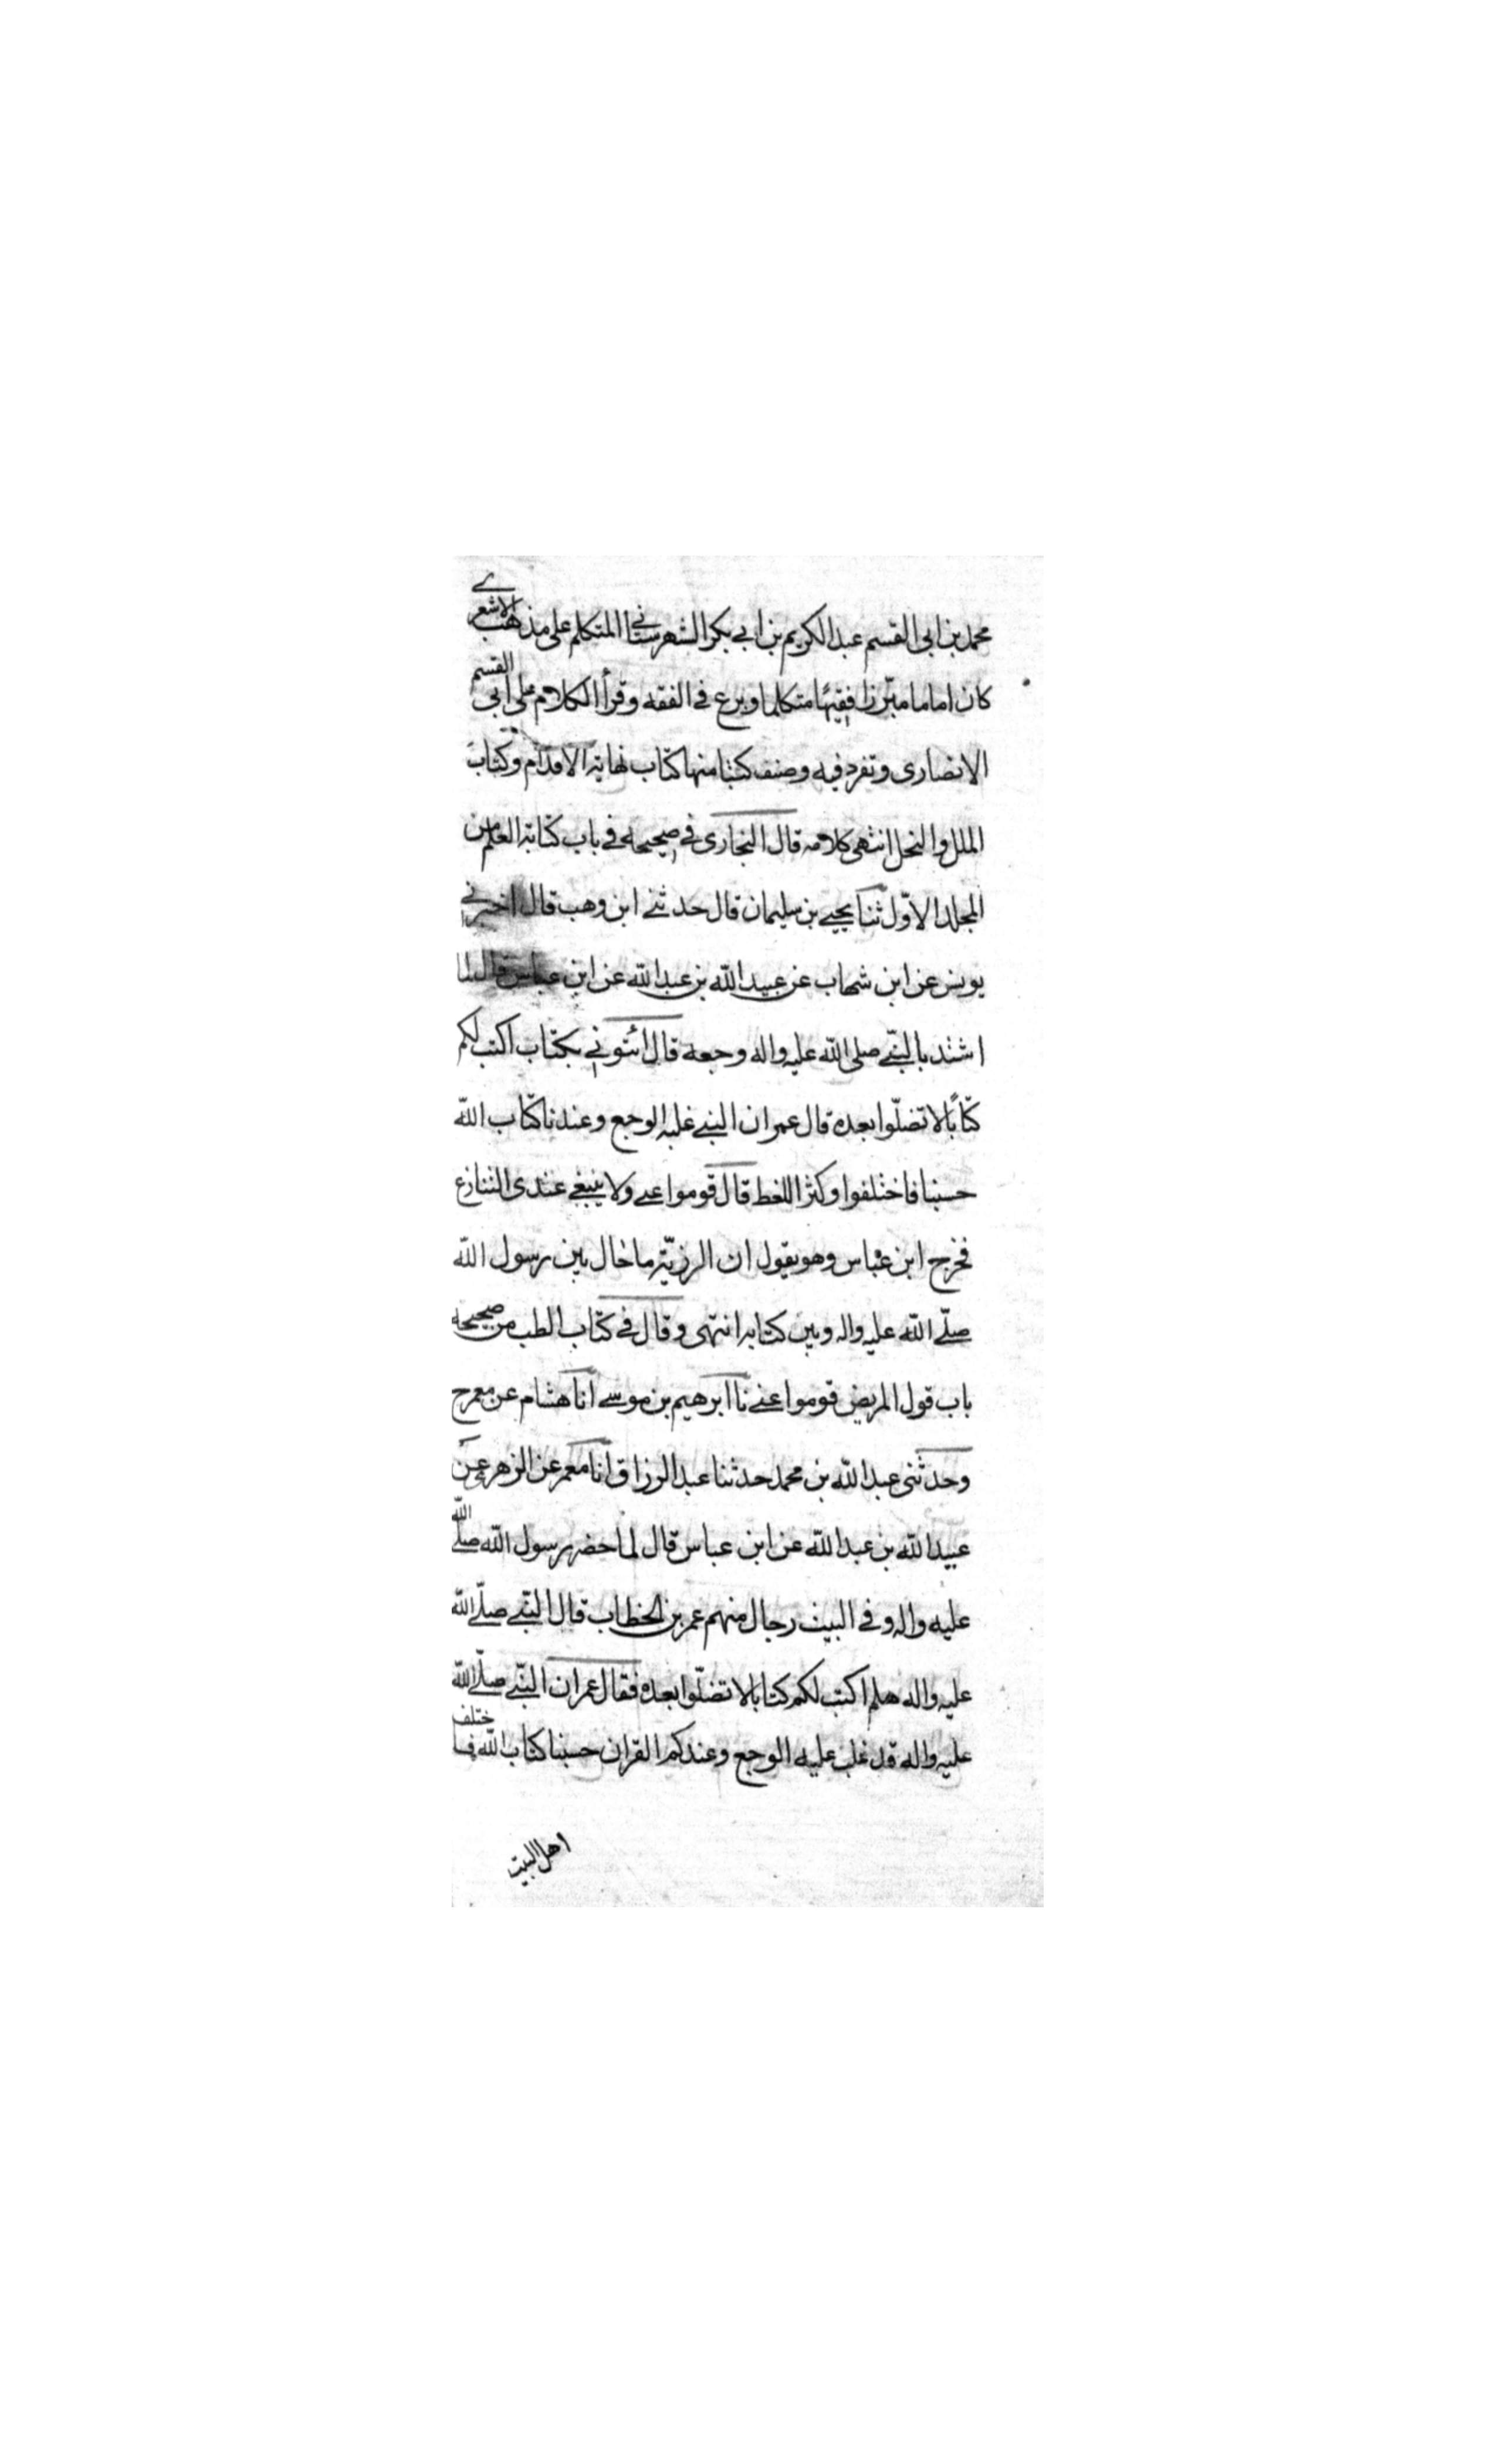 محمد بن ابي القسم عبد الكريم بن ابي بكر الشهرستاني المتكلم على مذهب الاشعري
كان اماما مبرزا فقيها متكلما وبرع في الفقه وقرأ الكلام على أبي القسم
الانصارى وتفرد فيه وصنف كتبا منها كتاب نهاية الاقدام وكتاب
الملل والنحل انتهى كلامه قال البخارى في صحيحه في باب كتابة العلم من
المجلد الاوّل ثنا يحيى بن سليمان قال حدثني ابن وهب قال اخبرني
يونس عن ابن شهاب عن عبيد الله بن عبد الله عن ابن عباس قال لما
اشتد بالنبّي صلى الله عليه واله وجعه قال ائتوني بكتاب اكتب لكم
كتابًا لا تضلّوا بعده قال عمر ان النبي غلبه الوجع وعندنا كتاب الله
حسبنا فاختلفوا وكثر اللغط قال قوموا عني ولا ينبغي عندى التنازع
فخرج ابن عباس وهو يقول ان الرزيّة ما حال بين رسول الله
صلّى الله عليه واله وبين كتابه انتهى وقال في كتاب الطب من صحيحه
باب قول المريض قوموا عني نا ابرهيم بن موسى انا هشام عن معمر ح
وحدثنى عبد الله بن محمد حدثنا عبد الرزاق انا معمر عن الزهري عن
عبيد الله بن عبد الله عن ابن عباس قال لما حضر رسول الله صلّى الله
عليه واله وفي البيت رجال منهم عمر بن الخطاب قال النبّي صلّى الله
عليه واله هلم اكتب لكم كتابا لا تضلّوا بعده فقال عمر ان النبّي صلّى الله
عليه واله قد غلب عليه الوجع وعندكم القران حسبنا كتاب الله فاختلف
اهل البيت